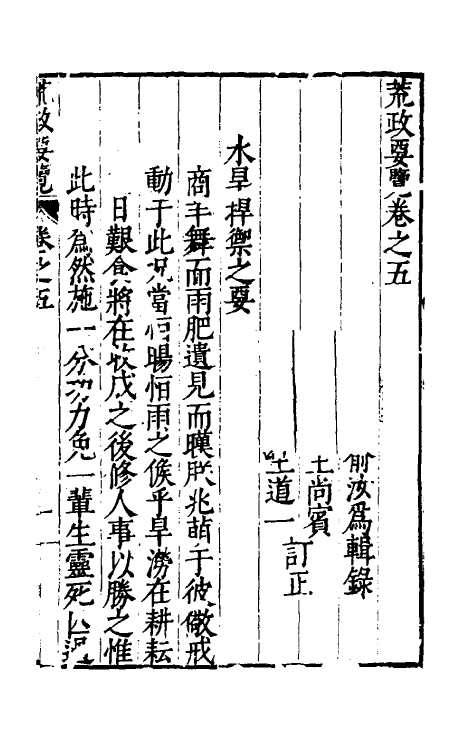 荒政要覽卷之五
俞汝爲輯錄
王尚賓
王道一
訂正
水旱捍禦之要
商羊舞而雨肥遺見而暵朕兆萌于彼儆戒
動于此況當恒暘恒雨之候乎旱澇在耕耘
日艱食將在收成之後修人事以勝之惟
此時爲然施一分功力免一輩生靈死
荒政要覽 卷之五